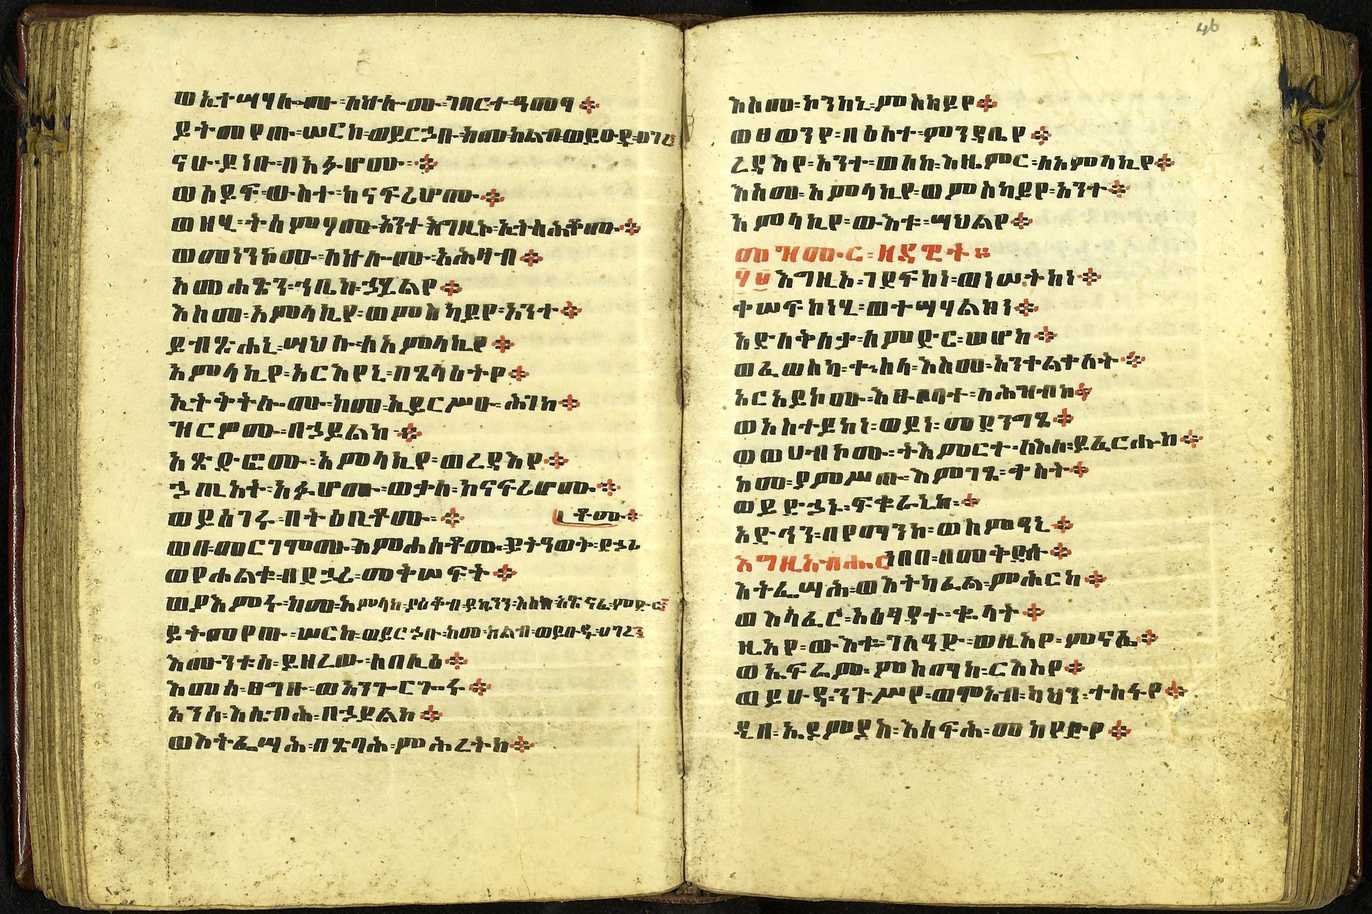 ወኢተሣሃሎሙ፡ለኵሎሙ፡ገበርተ፡ዓመፃ
ይትመየጡ፡ሠርከ፡ወይርኃቡ፡ከመ፡ከልብ፡ወይዑዱ፡ሀገረ
ናሁ፡ይነቡ፡በአፉሆሙ፡
ወሰይፍ፡ውስተ፡ከናፍሪሆሙ
አንተ፡እግዚኦ፡ኢትስሐቆሙ
ወመነንኮሙ፡ለኵሎሙ፡አሕዛብ
አመሐፄን፡ኀቤከ፡ኃይልየ
እስመ፡አምላኪየ፡ወምስካይየ፡አንተ
ይብጻሐኒ፡ሣህሉ፡ለአምላኪየ
አምላኪየ፡አርእየኒ፡በጸላዕትየ
ኢትቅትሎሙ፡ከመ፡ኢይርሥዑ፡ሕገከ
ዝርዎሙ፡በኃይልከ
አጽድፎሙ፡አምላኪየ፡ወረዳእየ
ኃጢአተ፡አፉሆሙ፡ወቃለ፡ከናፍሪሆሙ
ወይሰገሩ፡በትዕቢቶሙ
ወበመርገሞሙ፡እምሐሰቶሙ፡ይትዓወቅ፡ደኃሪ
ቶሙ
ወየሐልቁ፡በደኃሪ፡መቅሠፍት
ወያእምሩ፡ከመ፡አምላክ፡ያዕቆብ፡ይኳንን፡እስከ፡አጽናፈ፡ምድር
ይትመየጡ፡ሠርከ፡ወይርኃቡ፡ከመ፡ከልብ፡ወይዑዱ፡ሀገረ
እሙንቱሰ፡ይዘረው፡ለበሊዕ
እመሰ፡ፀግቡ፡ወአንጐርጐሩ
አንሰ፡እሴብሕ፡በኃይልከ
ወእትፌሣሕ፡በጽባሕ፡ምሕረትከ
46
እስመ፡ኮንከኒ፡ምስካይየ
ወፀወንየ፡በዕለተ፡ምንዳቤየ
ረዳእየ፡አንተ፡ወለከ፡እዜምር፡ለአምላኪየ
እስመ፡አምላኪየ፡ወምስካይየ፡አንተ
አምላኪየ፡ውእቱ፡ሣህልየ
መዝሙር፡ዘዳዊት።
፶፱ እግዚኦ፡ገደፍከነ፡ወነሠትከነ
ቀሠፍከነሂ፡ወተሣሃልከነ
አድለቅለቃ፡ለምድር፡ወሆካ
ወፈወስካ፡ቍስላ፡እስመ፡አንቀልቀለት
አርአይኮሙ፡እፀቦሳተ፡ለሕዝብከ
ወአስተይከነ፡ወይነ፡መደንግፄ
ወወሀብኮሙ፡ትእምርተ፡ለእለ፡ይፈርሑከ
ከመ፡ያምሥጡ፡እምገጸ፡ቀስት
ወይድኃኑ፡ፍቁራኒከ
አድኅን፡በየማንከ፡ወስምዓኒ
እግዚአብሔር፡ነበበ፡በመቅደሱ
እትፌሣሕ፡ወእትካፈል፡ምሕርካ
ወእሳፈር፡አዕፃዳተ፡ቈላት
ዚአየ፡ውእቱ፡ገለዓድ፡ወዚአየ፡ምናሴ
ወኤፍሬም፡ምስማከ፡ርእስየ
ወይሁዳ፡ንጉሥየ፡ወሞአብ፡ካህን፡ተስፋየ
ዲበ፡ኤዶምያስ፡እሰፍሕ፡መከየድየ